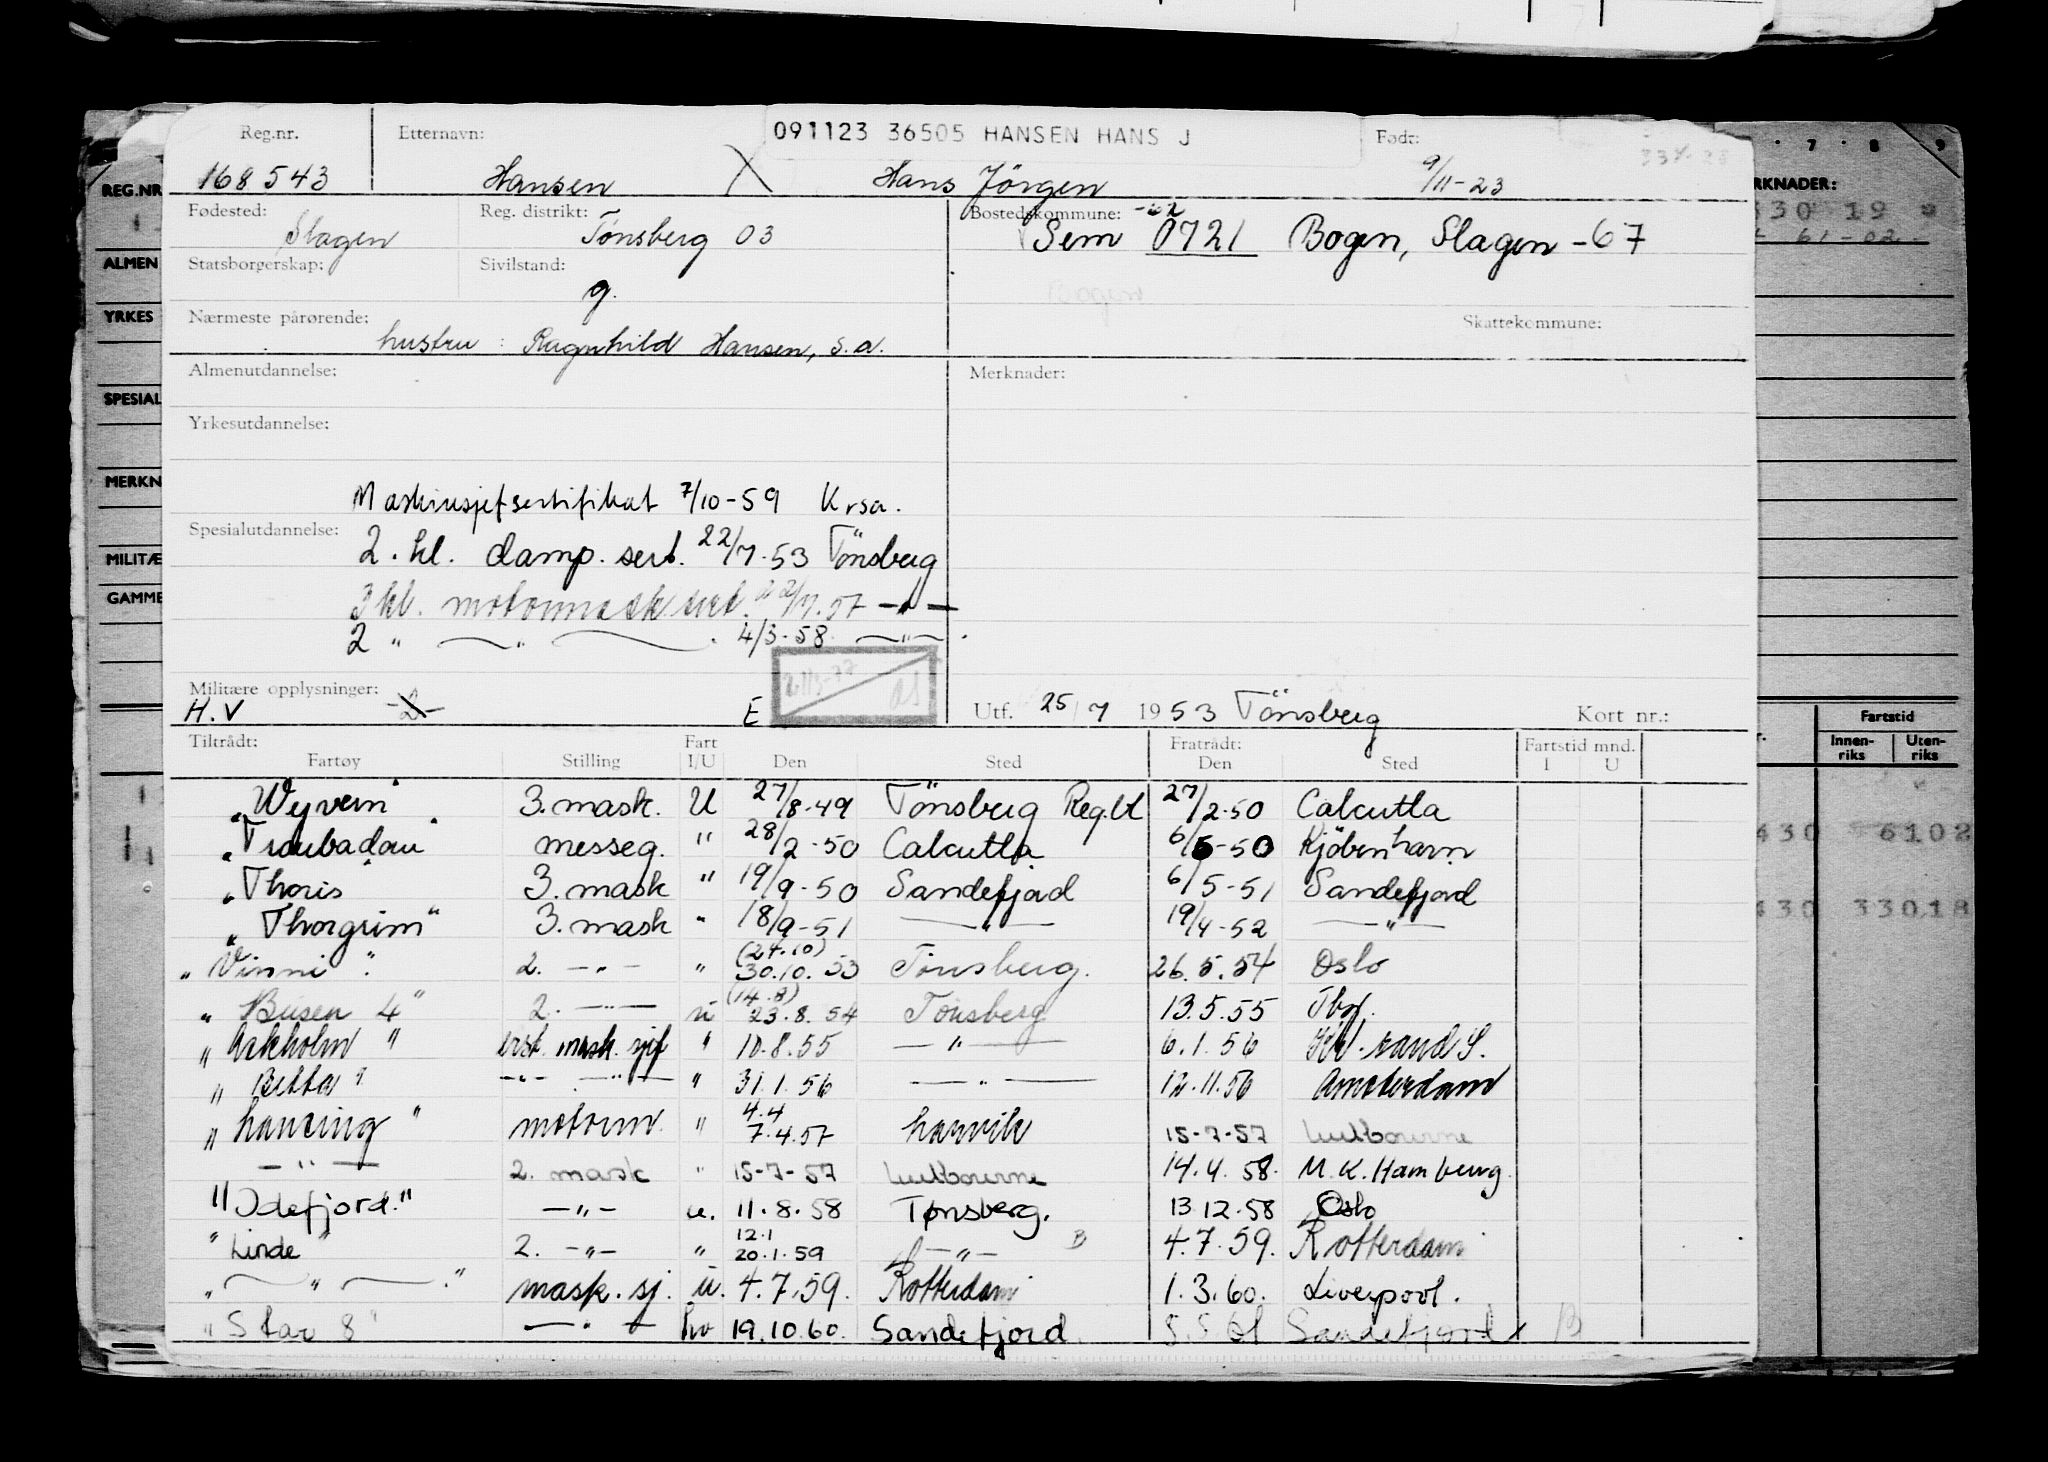 091123 36505 HANSEN HANS J
Reg.nr. Etternavn: Født:
168543 Hansen X Hans Jörgen 9/11-23
Fødested: Reg. distrikt: Bostedskommune: -62
Slagen Tønsberg 03 Sem 0721 Bogen, Slagen -67
Statsborgerskap: Sivilstand:
g.
Nærmeste pårørende: Skattekommune:
hustru : Ragnhild Hansen, s.a.
Almenutdannelse: Merknader:
Yrkesutdannelse:
Maskinsjefsertifikat 7/10-59 Krsa.
Spesialutdannelse:
2. kl. damp. sert. 22/7.53 Tönsberg
3 kl. motormask sert. 22/7.57 — " —
2 " — " — 4/3-58 — " — .
Militære opplysninger:
H.V -2- E
Utf. 25/7 1953 Tönsberg Kort nr.:
Tiltrådt: Fart Fratrådt: Fartstid mnd.
Fartøy Stilling I/U Den Sted Den Sted I U
"Wyvern" 3. mask. U 27/8-49 Tönsberg Reg.bl 27/2-50 Calcutta
"Troubadour" messeg. " 28/2-50 Calcutta 6/5-50 Kjöbenhavn
"Thoris" 3. mask " 19/9-50 Sandefjord 6/5-51 Sandefjord
"Thorgrim" 3. mask " 18/9-51 — " — 19/4-52 — " —
(24.10)
"Vinni" 2. — " — " 30.10.53 Tönsberg. 26.5.54 Oslo
(14.8)
"Busen 4" 2. — " — u 23.8.54 Tönsberg 13.5.55 Tbg.
"Askholm" mask. sjef " 10.8.55 — " — 6.1.56 Kr.sand S.
"Betta" — " — " — " 31.1.56 — " — 12.11.56 Amsterdam
4.4
"Lancing" motorm. " 7.4.57 Larvik 15-7-57 Melbourne
— " — 2. mask " 15-7-57 Melbourne 14.4.58. M.K. Hamburg.
"Idefjord." — " — u. 11.8.58 Tønsberg. 13.12.58 Oslo
12.1
"Linde" 2. — " — " 20.1.59 — " — B 4.7.59. Rotterdam
" — " — ." mask. sj. u. 4.7.59. Rotterdam 1.3.60. Liverpool.
"Star 8" — " — hv 19.10.60. Sandefjord. 5.5.61 Sandefjord B
REG.NR
ALMEN
YRKES
SPESIAL
MERKN
MILITÆ
GAMME
7 · 8 · 9
RKNADER:
330 19
61-02
Fartstid
Innen-riks Uten-riks
430 6102
430 33018